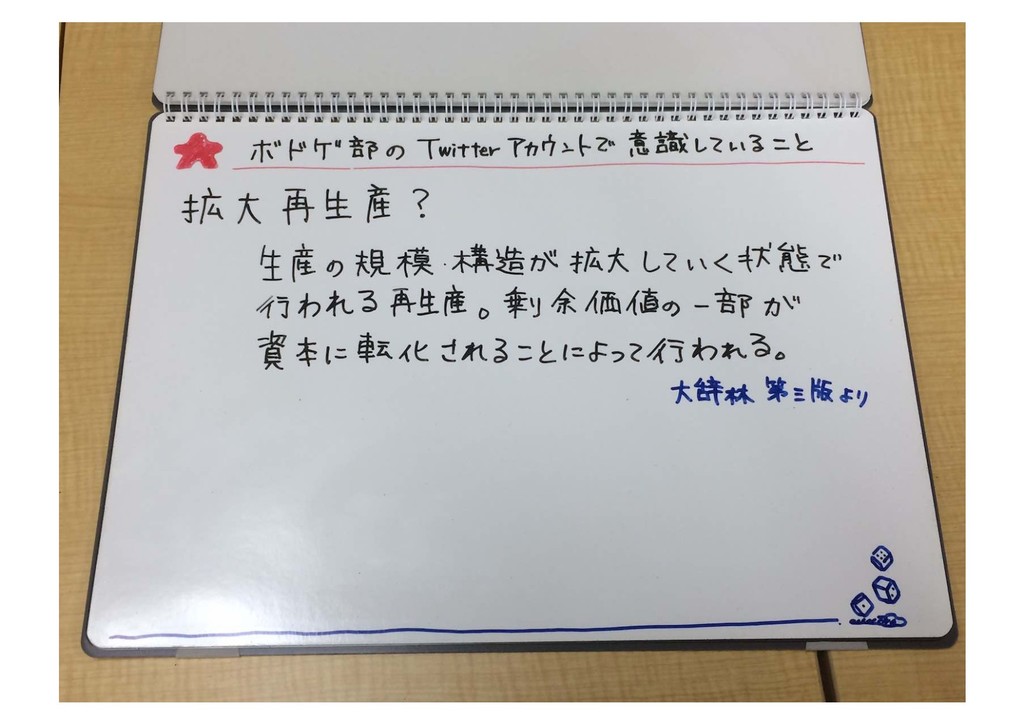 ボドゲ部のTwitterアカウントで意識していること
拡大再生産？
生産の規模・構造が拡大していく状態で
行われる再生産。剰余価値の一部が
資本に転化されることによって行われる。
大辞林 第三版より